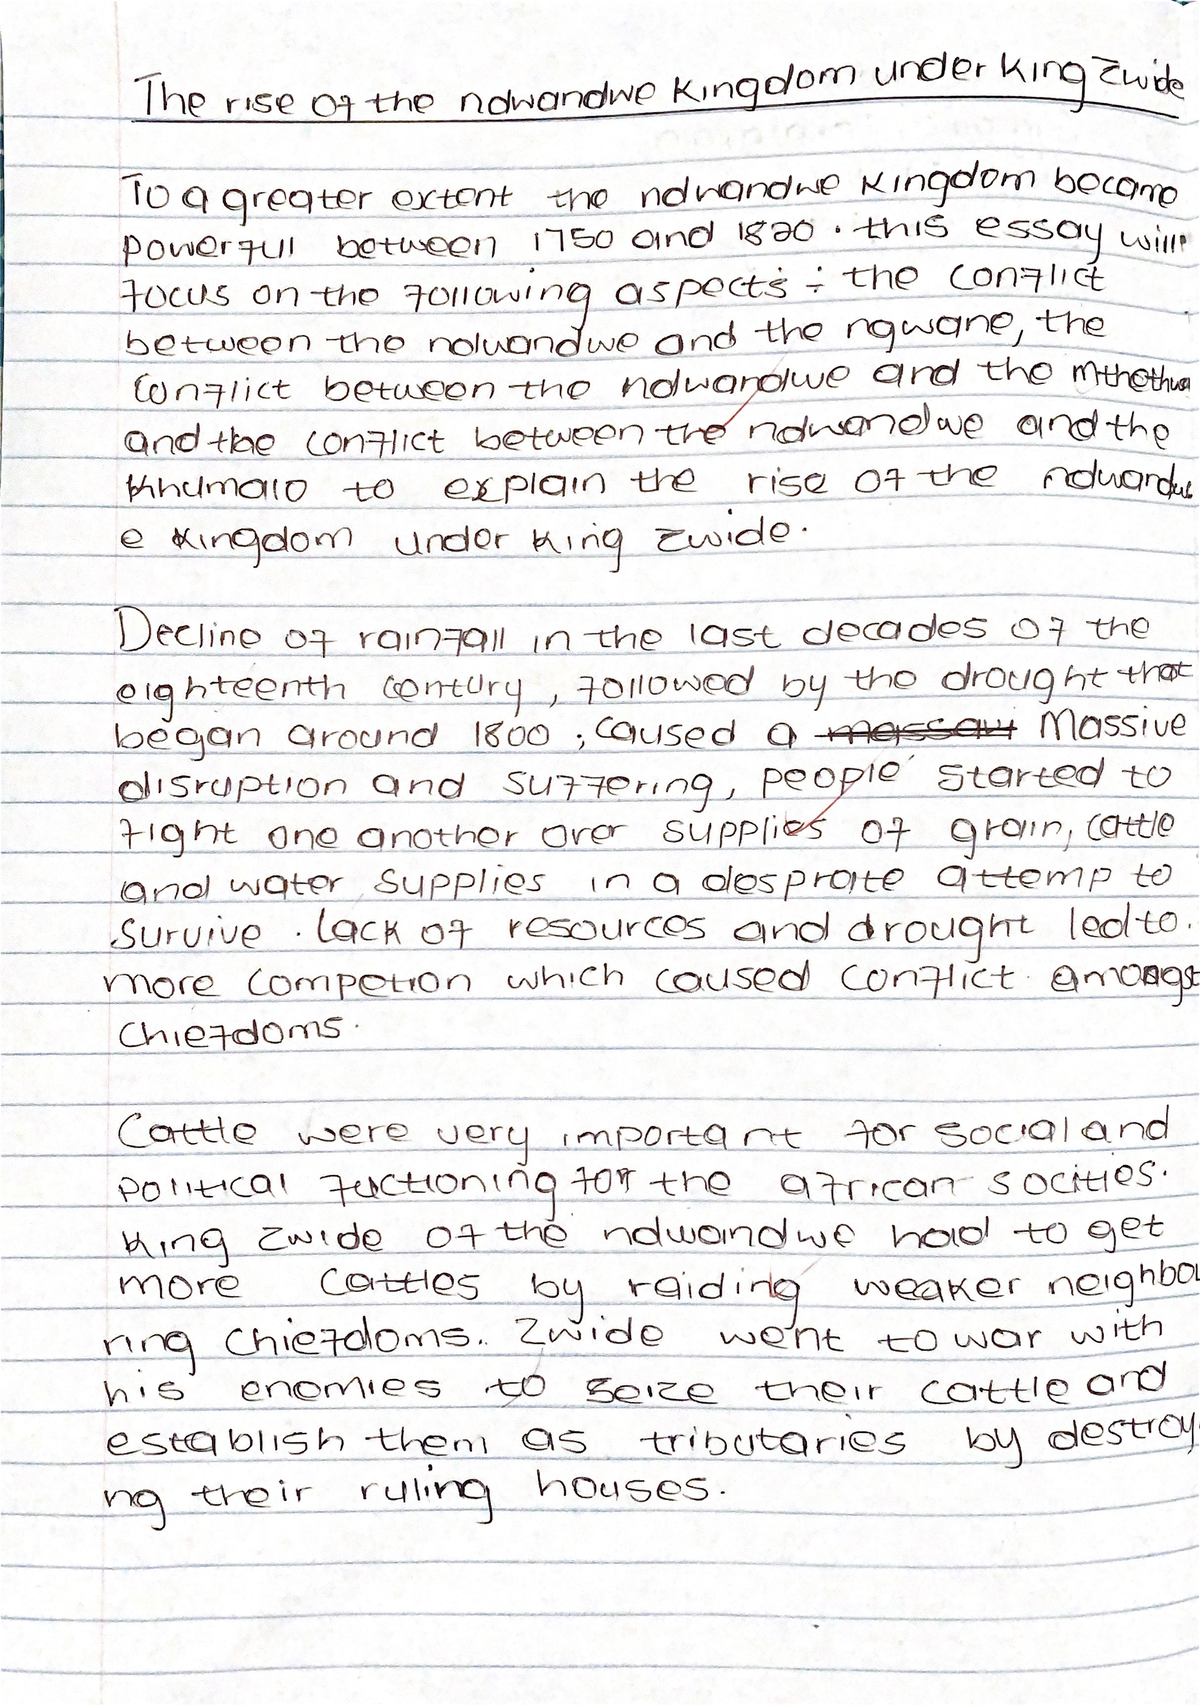 The rise of the ndwandwe Kingdom under King Zwide
To a greater extent the ndwandwe Kingdom became
powerfull between 1750 and 1820 . this essay will
focus on the following aspects : the conflict
between the ndwandwe and the ngwane, the
conflict between the ndwandwe and the mthethwa
and the conflict between the ndwandwe and the
Khumalo to explain the rise of the ndwandw
e Kingdom under King Zwide.
Decline of rainfall in the last decades of the
eighteenth century , followed by the drought that
began around 1800 ; caused a Massive
disruption and suffering, people started to
fight one another over supplies of grain, cattle
and water supplies in a desprate attemp to
survive . lack of resources and drought led to.
more competion which caused conflict amongst
chiefdoms.
Cattle were very important for social and
political fuctioning for the african socities.
King Zwide of the ndwandwe had to get
more cattles by raiding weaker neighbou
ring chiefdoms.. Zwide went to war with
his enemies to seize their cattle and
establish them as tributaries by destroy
ng their ruling houses.